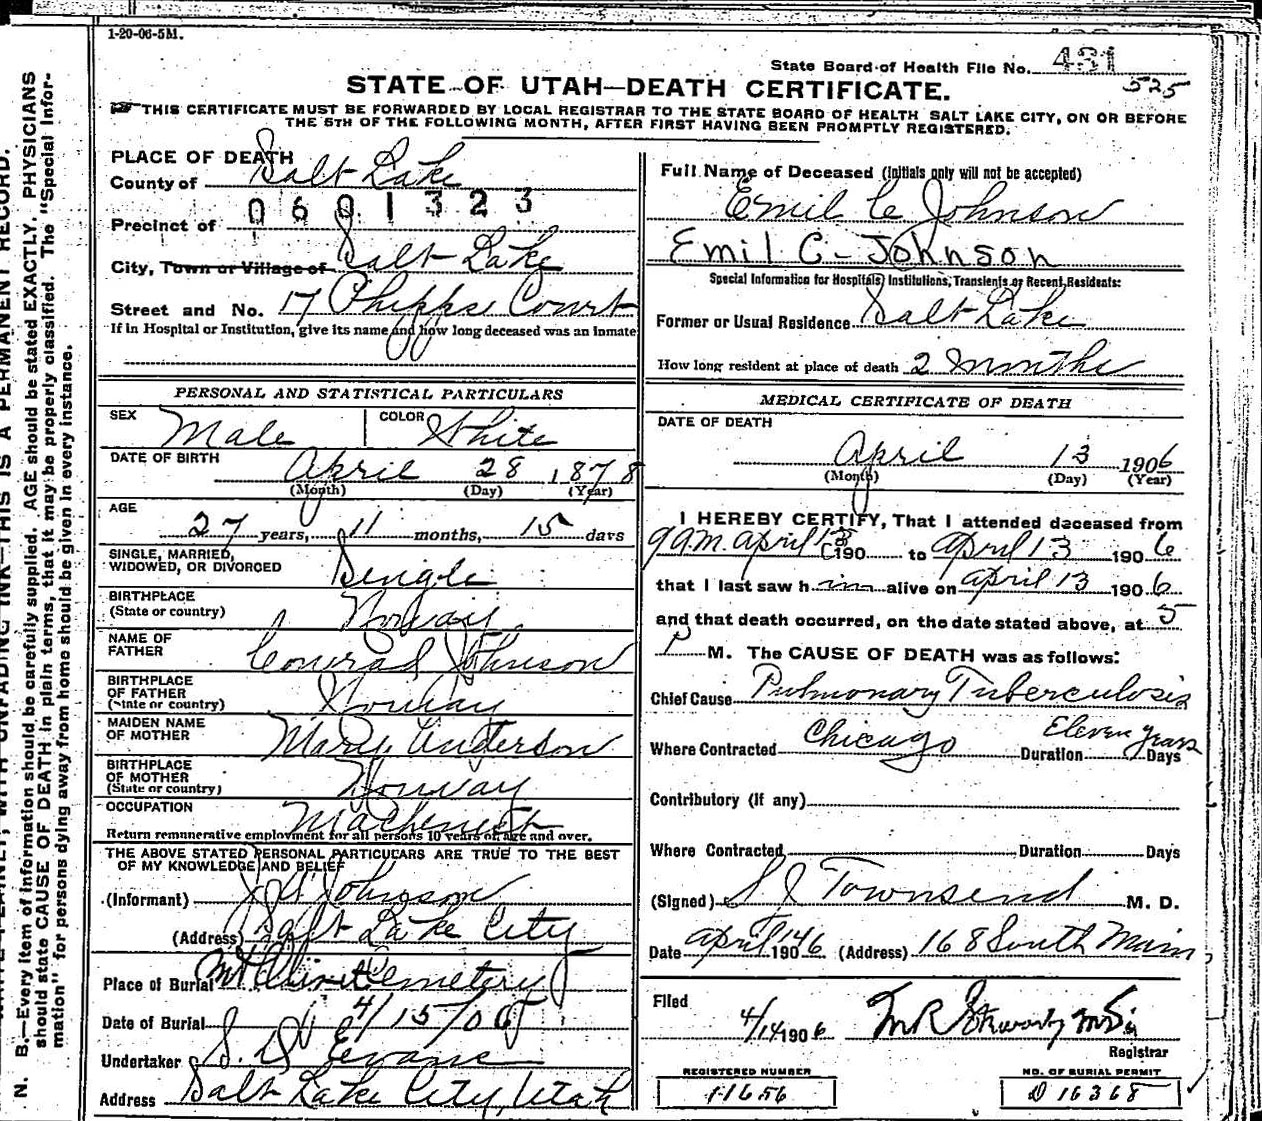 1-20-06-5M.
State Board of Health File No. 431
525
STATE OF UTAH—DEATH CERTIFICATE.
THIS CERTIFICATE MUST BE FORWARDED BY LOCAL REGISTRAR TO THE STATE BOARD OF HEALTH SALT LAKE CITY, ON OR BEFORE
THE 5TH OF THE FOLLOWING MONTH, AFTER FIRST HAVING BEEN PROMPTLY REGISTERED.
PLACE OF DEATH
County of Salt Lake
0601323
Precinct of
City, Town or Village of Salt Lake
Street and No. 17 Phipps Court
If in Hospital or Institution, give its name and how long deceased was an inmate
PERSONAL AND STATISTICAL PARTICULARS
SEX Male COLOR White
DATE OF BIRTH April 28 1878
(Month) (Day) (Year)
AGE
27 years, 11 months, 15 days
SINGLE, MARRIED,
WIDOWED, OR DIVORCED Single
BIRTHPLACE
(State or country) Norway
NAME OF
FATHER Conrad Johnson
BIRTHPLACE
OF FATHER
(State or country) Norway
MAIDEN NAME
OF MOTHER Mary Anderson
BIRTHPLACE
OF MOTHER
(State or country) Norway
OCCUPATION Machenist
Return remunerative employment for all persons 10 years of age and over.
THE ABOVE STATED PERSONAL PARTICULARS ARE TRUE TO THE BEST
OF MY KNOWLEDGE AND BELIEF
(Informant) Johnson
(Address) Salt Lake City
Place of Burial Mt Olivet Cemetery
Date of Burial 4/15/06
Undertaker S. D. Evans
Address Salt Lake City, Utah
Full Name of Deceased (Initials only will not be accepted)
Emil C Johnson
Emil C- Johnson
Special Information for Hospitals, Institutions, Transients or Recent Residents:
Former or Usual Residence Salt Lake
How long resident at place of death 2 Months
MEDICAL CERTIFICATE OF DEATH
DATE OF DEATH
April 13 1906
(Month) (Day) (Year)
I HEREBY CERTIFY, That I attended deceased from
9 a.m. april 13 190 to april 13 1906
that I last saw him alive on april 13 1906
and that death occurred, on the date stated above, at 5
P M. The CAUSE OF DEATH was as follows:
Chief Cause Pulmonary Tuberculosis
Where Contracted Chicago Duration Eleven years Days
Contributory (If any)
Where Contracted Duration Days
(Signed) Townsend M. D.
Date april 14 1906 (Address) 168 South Main
Filed
4/14 1906
Registrar
REGISTERED NUMBER
11656
NO. OF BURIAL PERMIT
D 16368
N. B.—Every item of information should be carefully supplied. AGE should be stated EXACTLY. PHYSICIANS
should state CAUSE OF DEATH in plain terms, that it may be properly classified. The "Special Infor-
mation" for persons dying away from home should be given in every instance.